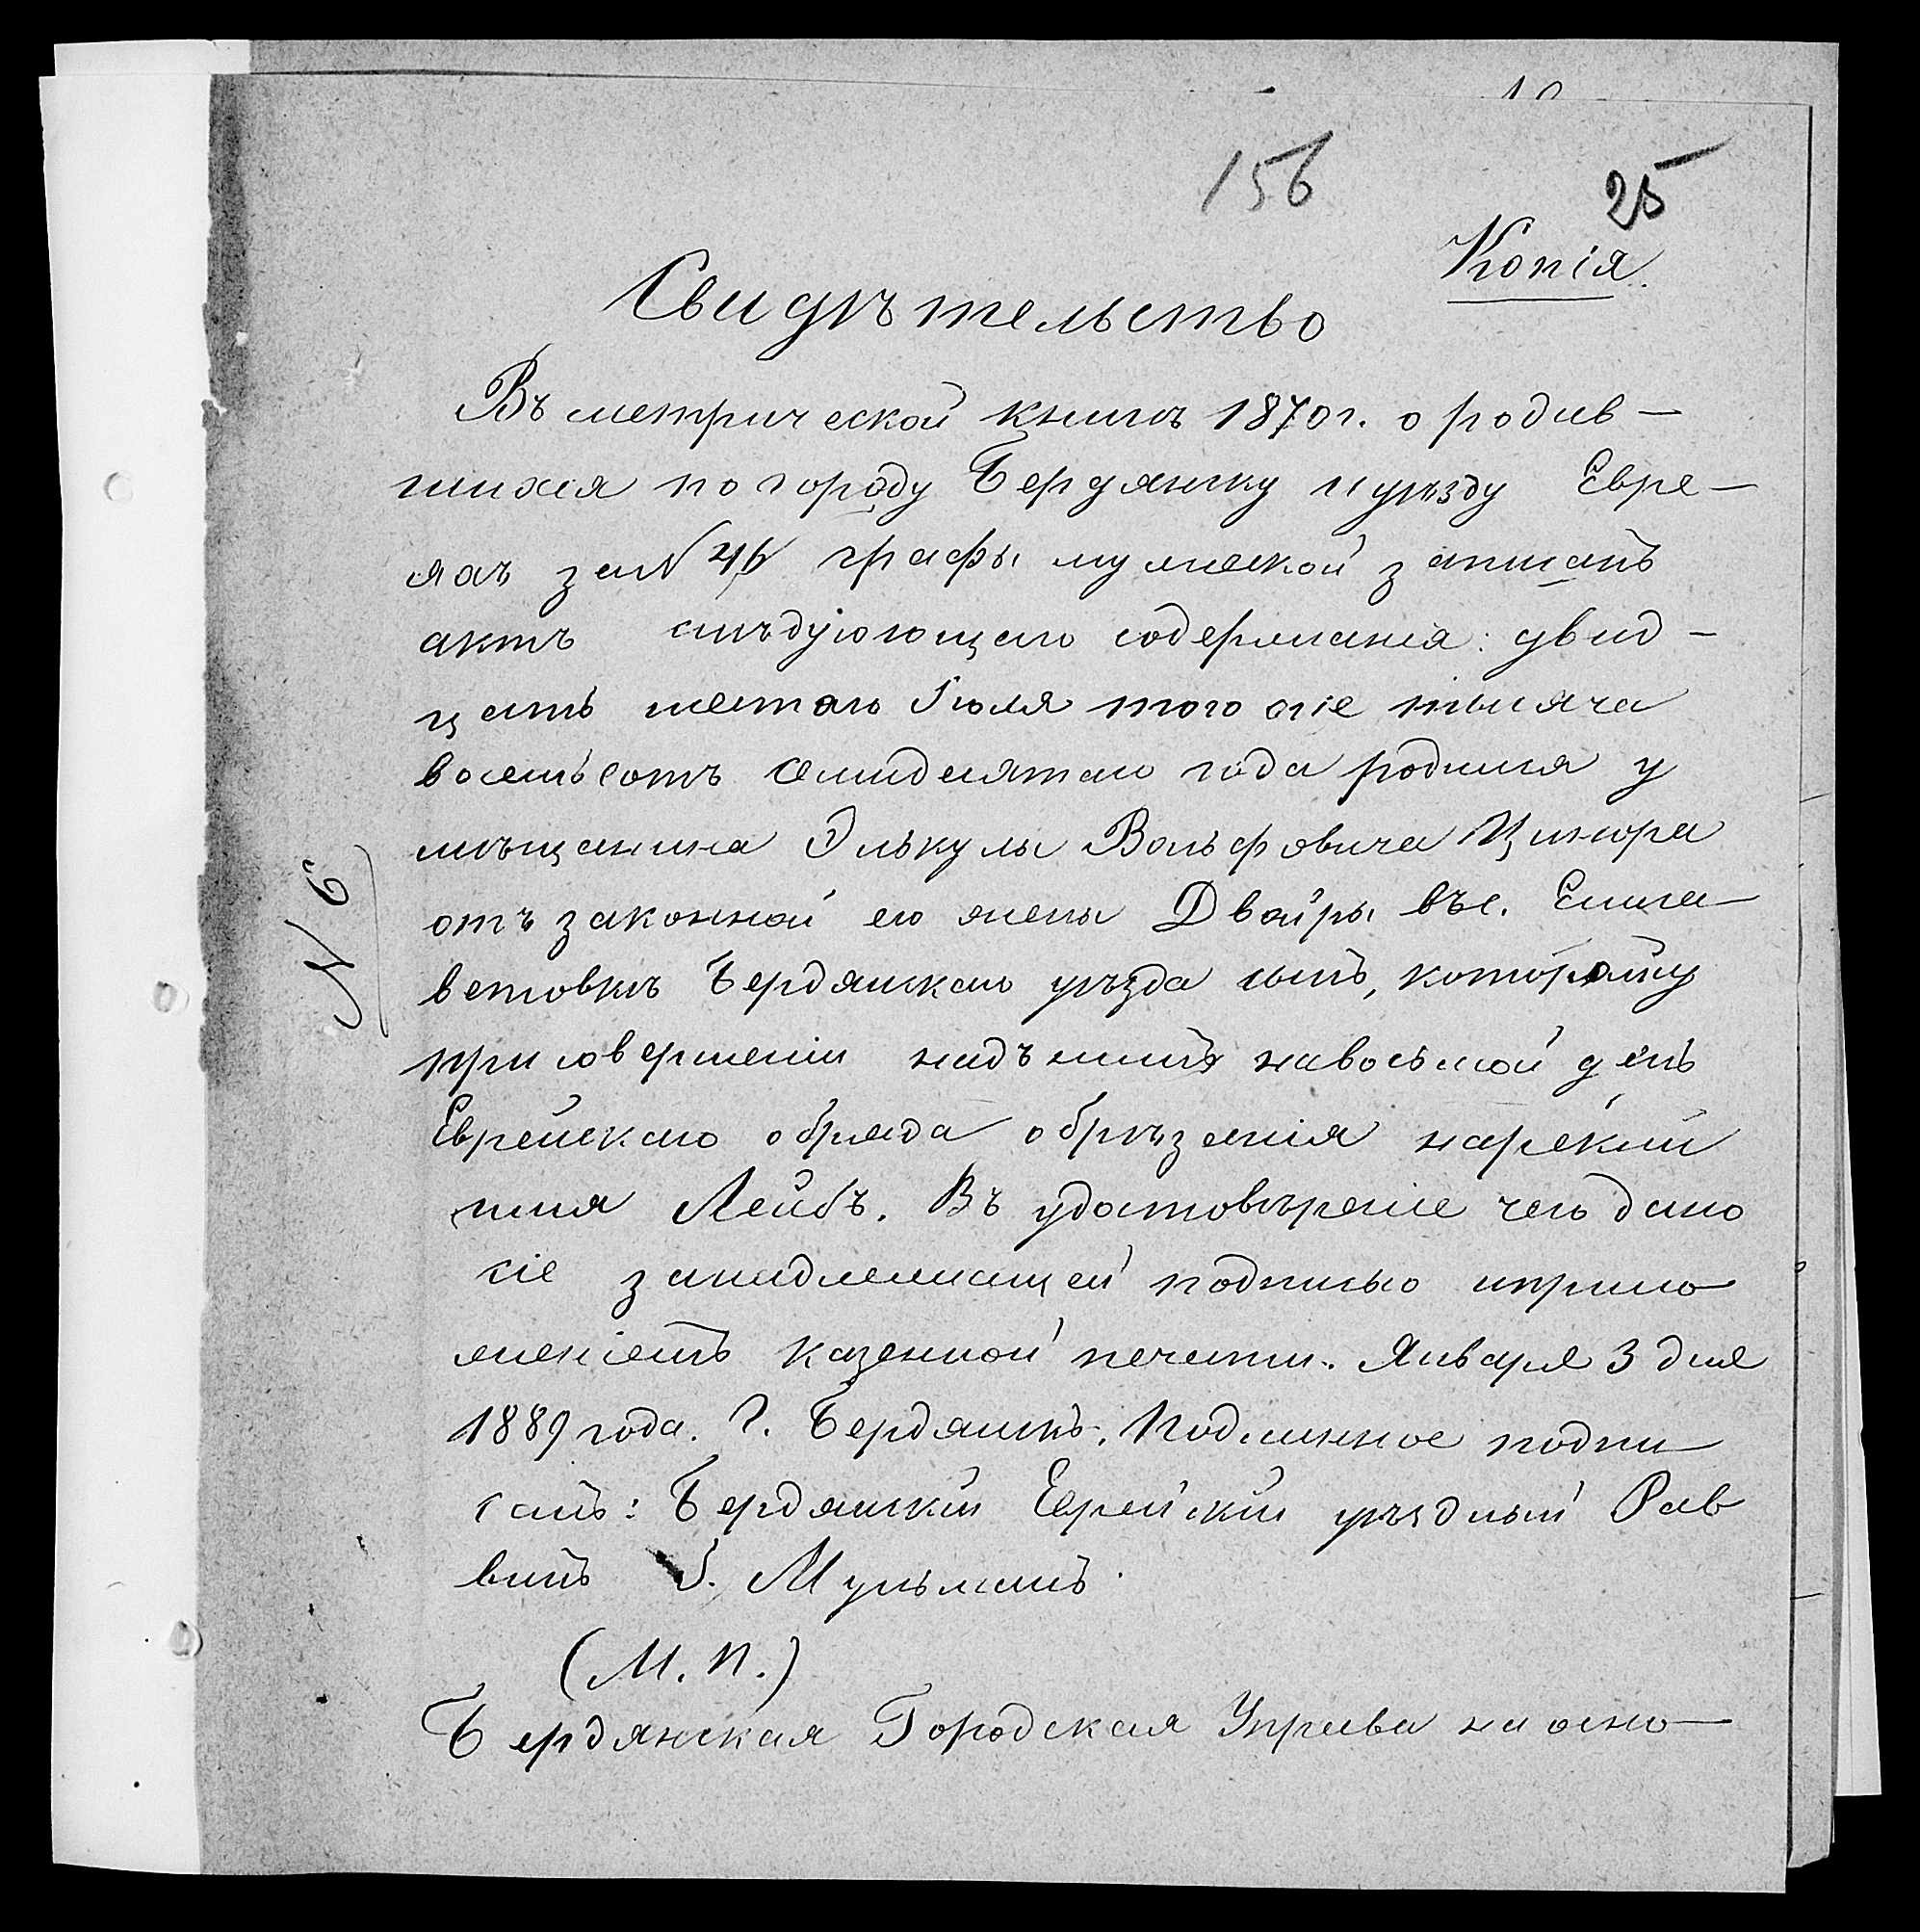 156
25
Копія.
Свидѣтельство
Въ метрической книгѣ 1870 г. о родив-
шихся по городу Бердянску и уѣзду Евре-
яхъ за N 46 графы мужеской записанъ
актъ слѣдующаго содержанія: двад-
цать шестаго Іюля того же тысяча
восемьсотъ семидесятаго года родился у
мѣщанина Элькуны Вольфовича Цинюра
отъ законной его жены Двойры въ с. Елиса-
ветовкѣ Бердянскаго уѣзда сынъ, которому
при совершеніи надъ нимъ на восьмой день
Еврейскаго обряда обрѣзанія нарекли
имя Лейбъ. Въ удостовѣреніе чего дано
сіе за надлежащей подписью и прило-
женіемъ казенной печати. Января 3 дня
1889 года. Г. Бердянскъ. Подлинное подпи
салъ: Бердянскій Еврейскій уѣздный Рав
винъ І. Мульманъ.
(М. П.)
Бердянская Городская Управа на осно-
N 6